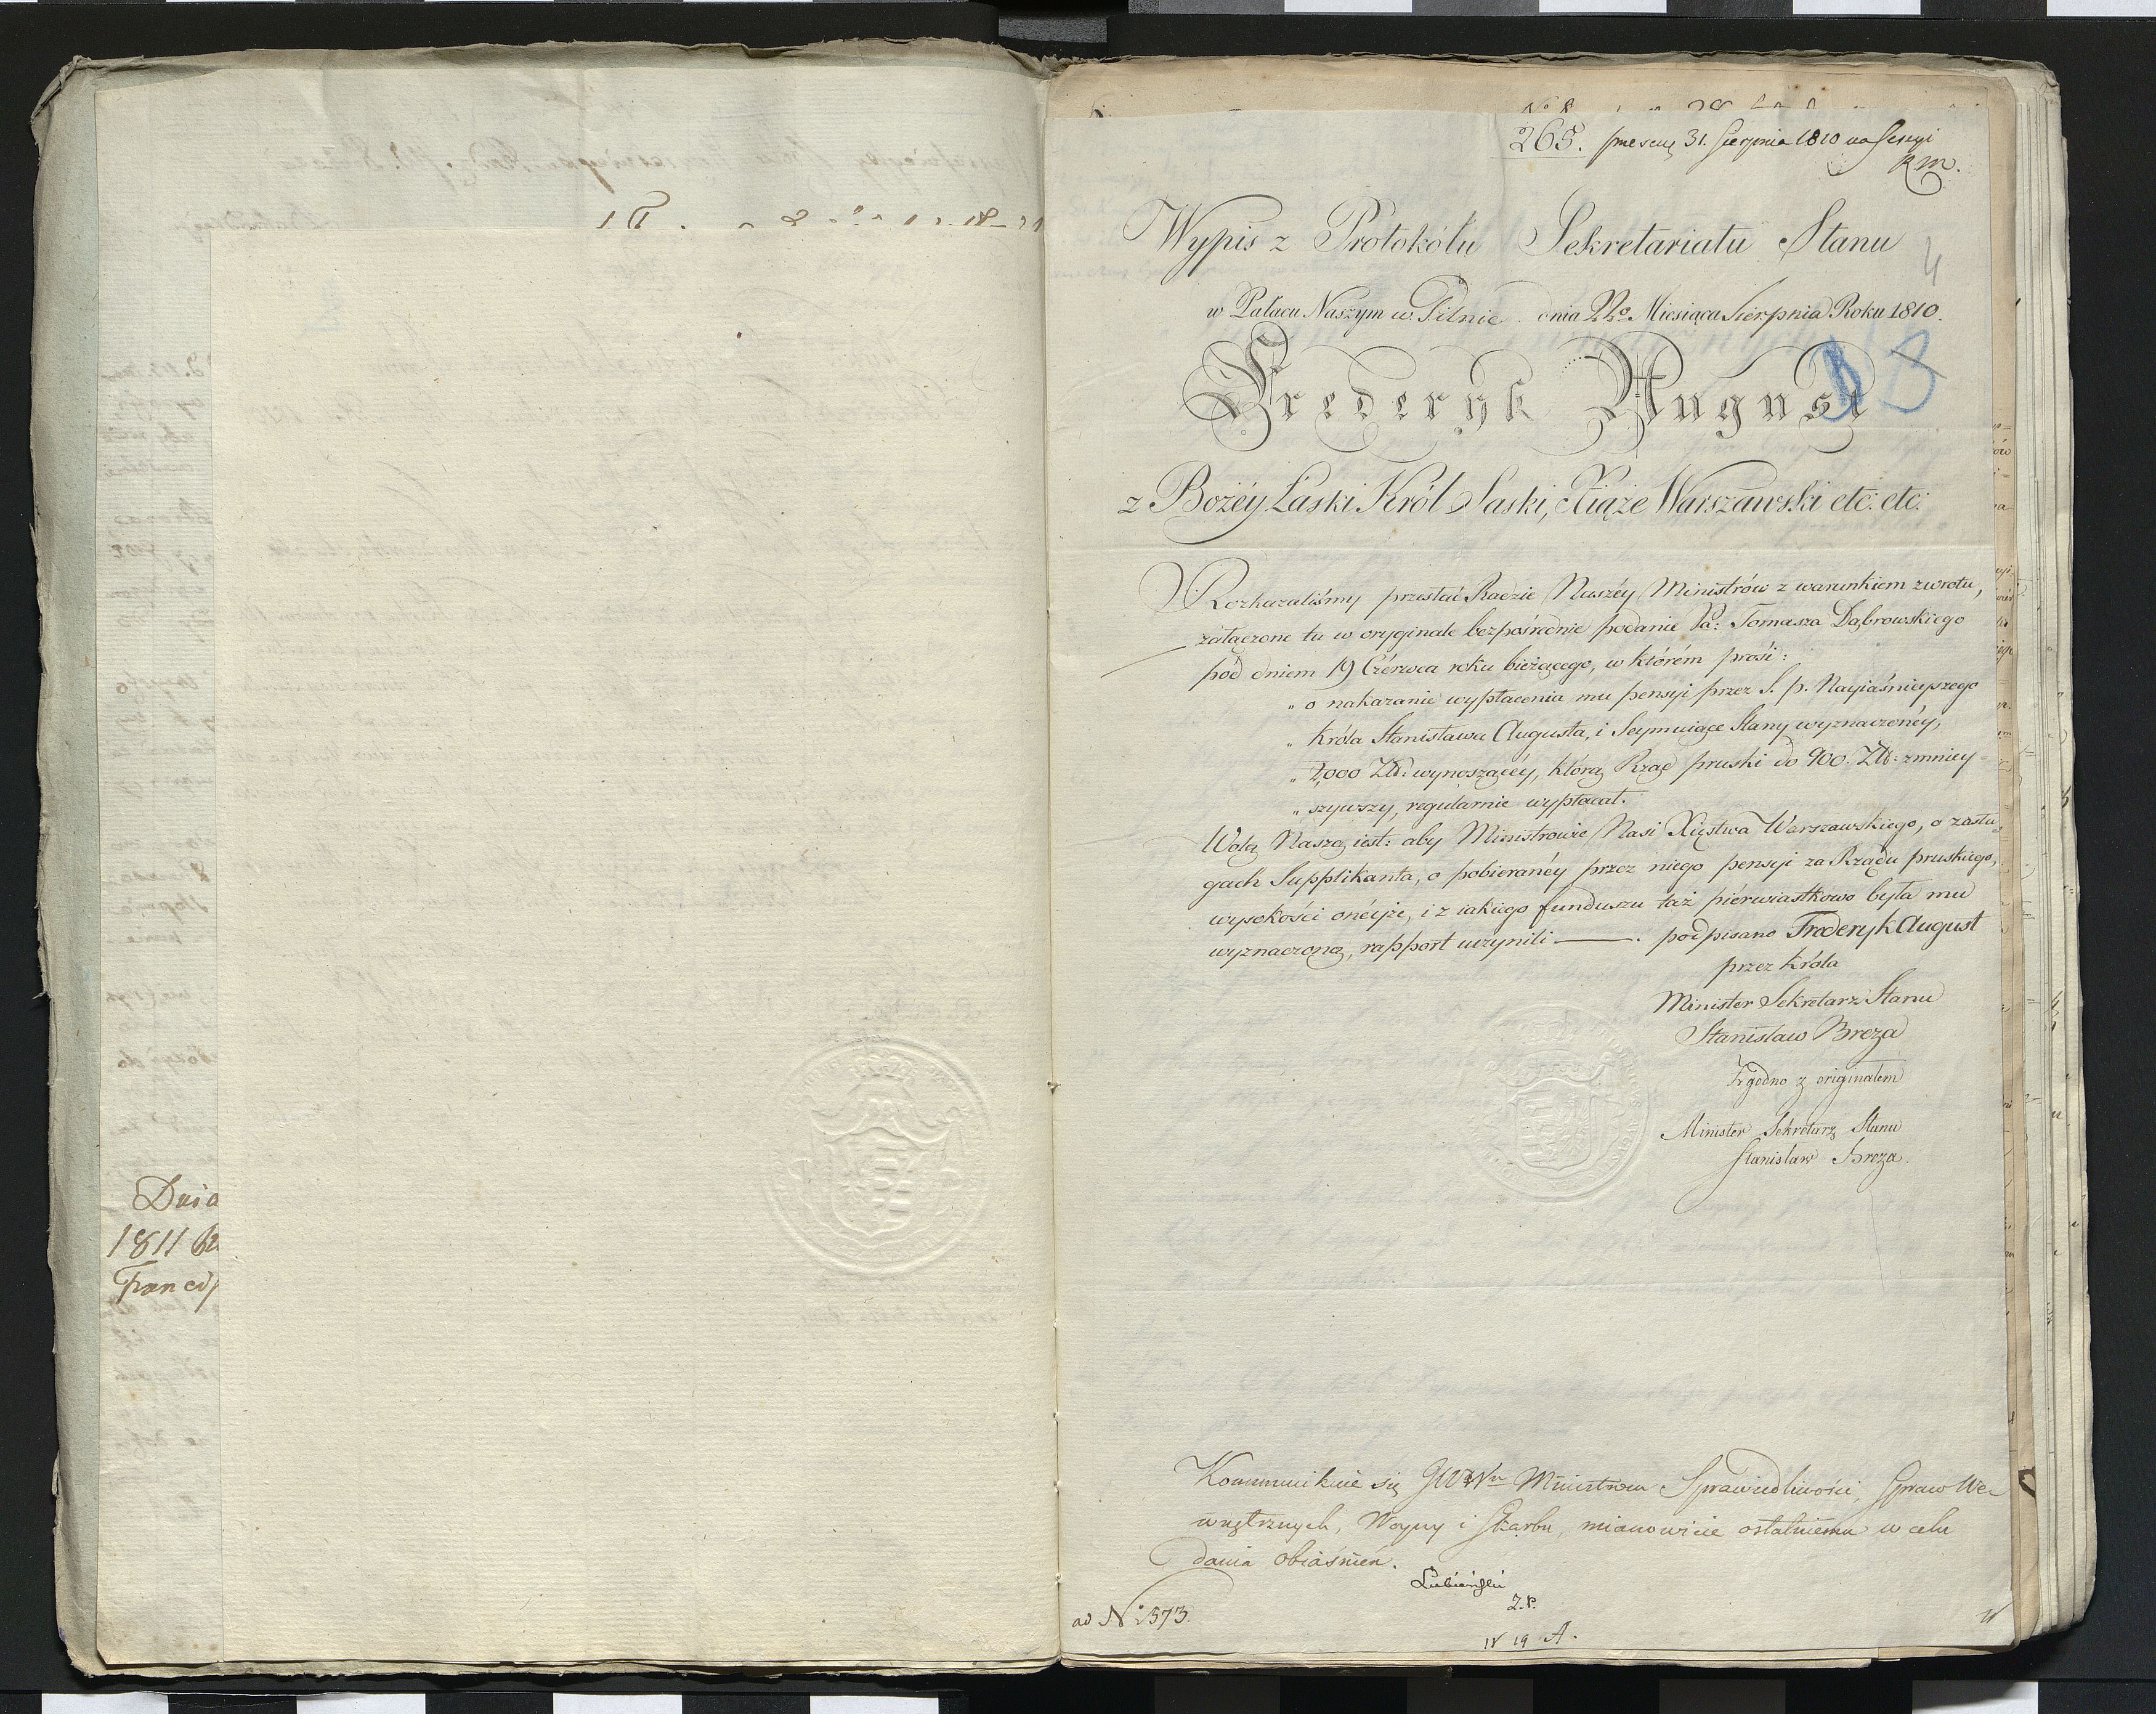 Dnia
1811
265. 31. Sierpnia 1810 na Sessyi
RM.
Wypis z Protokólu Sekretariatu Stanu
4
w Pałacu Naszym w Pilnic dnia 22o Miesiąca Sierpnia Roku 1810.
Frederyk August
z Bożéy Łaski Król Saski, Xiąże Warszawski etc: etc:
Rozkazaliśmy przesłać Radzie Naszéy Ministrów z warunkiem zwrotu,
załączone tu w oryginale bezpośrednie podanie Pa: Tomasza Dąbrowskiego
pod dniem 19 Czérwca roku bieżącego, w którém prosi:
„ o nakazanie wypłacenia mu pensyi przez S. p. Nayiaśnieyszego
„ Króla Stanisława Augusta, i Seymuiące Stany wyznaczonéy,
„ 2,000 Złł: wynoszącéy, którą Rząd pruski do 900. Złł: zmniey=
„ szywszy, regularnie wypłacał.
Wolą Naszą iest: aby Ministrowie Nasi Xięstwa Warszawskiego, o zasłu=
gach Supplikanta, o pobieranéy przez niego pensyi za Rządu pruskiego,
wysokości onéyże, i z iakiego funduszu taż piérwiastkowo była mu
wyznaczoną, rapport uczynili ——. podpisano Frederyk August
przez Króla
Minister Sekretarz Stanu
Stanisław Breza
Zgodno z originałem
Minister Sekretarz Stanu
Stanisław Breza.
Kommunikuie się Ministrom Sprawiedliwości, Spraw We=
wnętrznych, Woyny i Skarbu, mianowicie ostatniemu w celu
dania obiaśnień.
Łubieński
ad No 2573.
19 A.